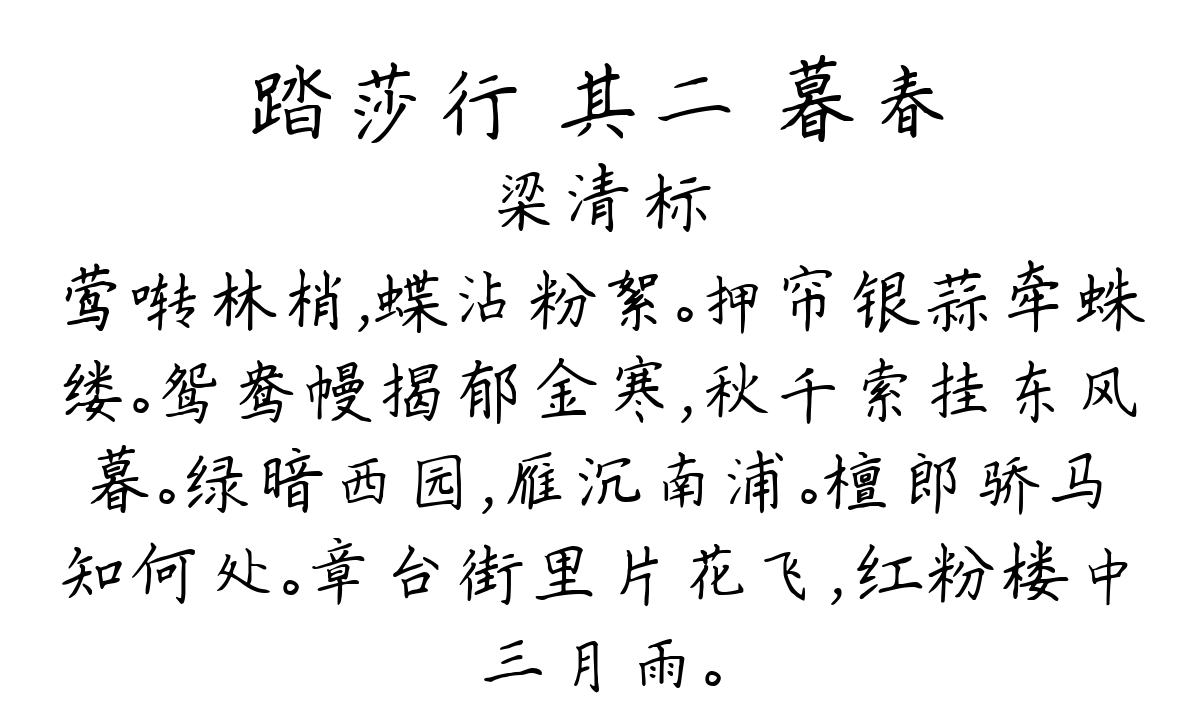 踏莎行 其二 暮春
梁清标
莺啭林梢,蝶沾粉絮。押帘银蒜牵蛛
缕。鸳鸯幔揭郁金寒,秋千索挂东风
暮。绿暗西园,雁沉南浦。檀郎骄马
知何处。章台街里片花飞,红粉楼中
三月雨。